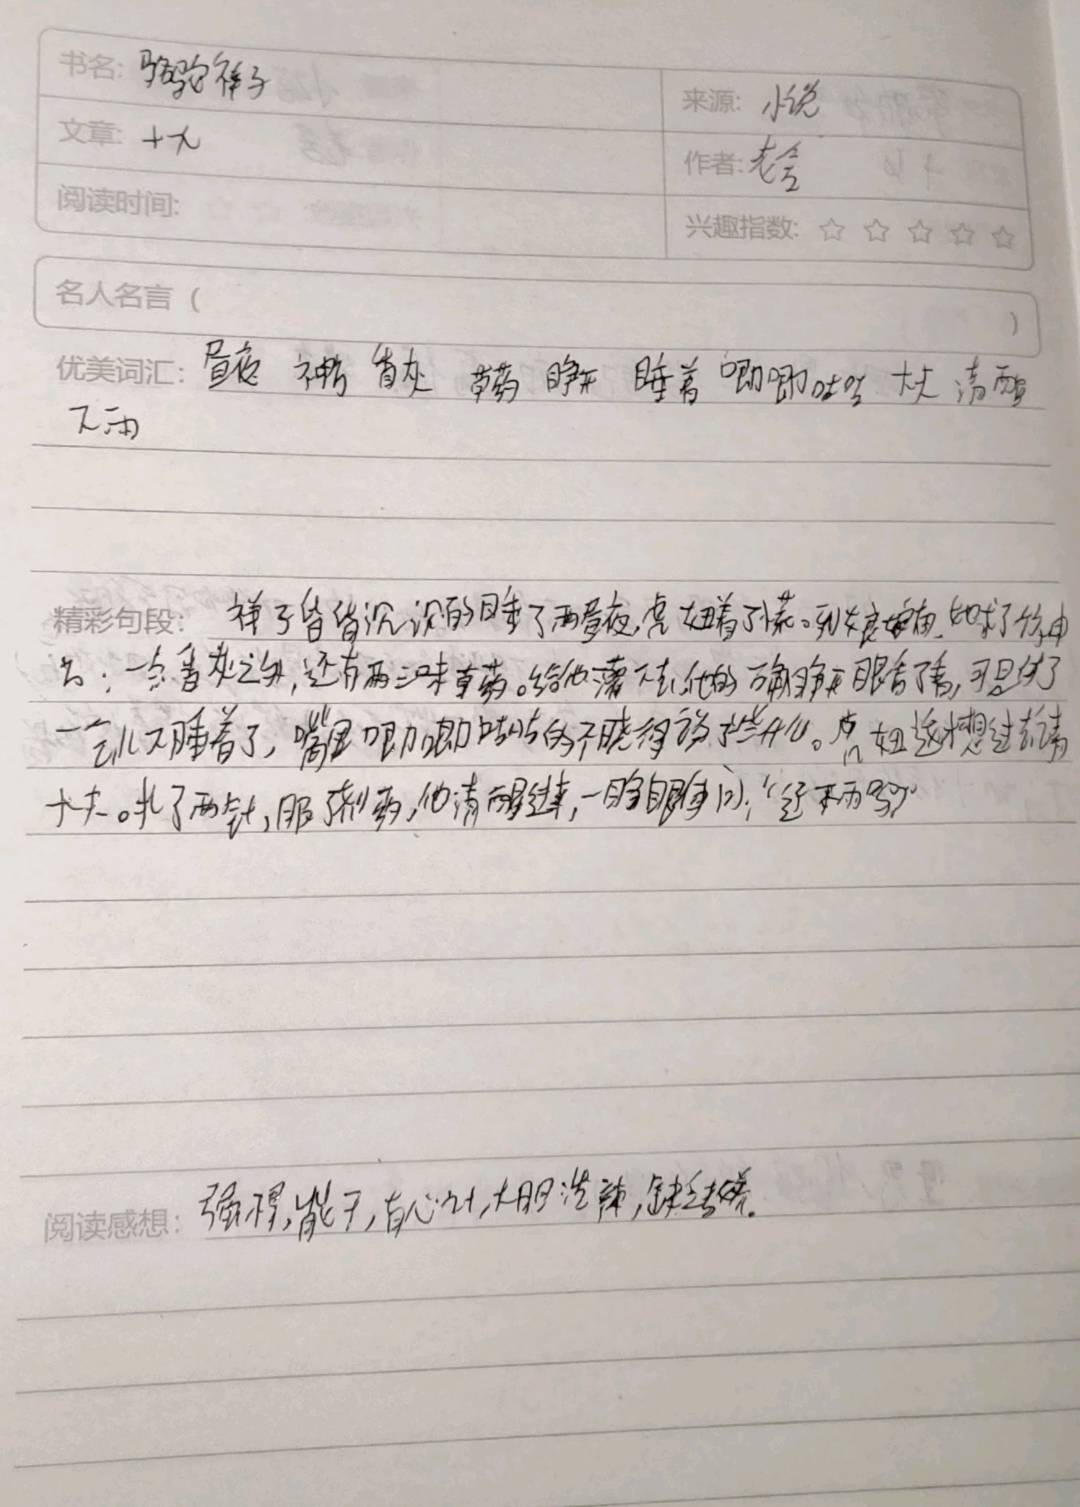 书名: 骆驼祥子
来源: 小说
文章: 十九
作者: 老舍
阅读时间:
兴趣指数: ☆ ☆ ☆ ☆ ☆
名人名言 ( )
优美词汇: 昼夜 神 香灰 草药 睁开 睡着 唧唧咕咕 大夫 清醒
下雨
精彩句段: 祥子昏昏沉沉的睡了两昼夜,虎妞着了慌。到娘娘庙,她求了个神
方:一点香灰之外,还有两三味草药。给他灌下去,他的确睁开眼看了看,可是待了
一会儿又睡着了,嘴里唧唧咕咕的不晓得说了些什么。虎妞这才想起去请
大夫。扎了两针,服了剂药,他清醒过来,一睁眼便问:“还下雨吗?”
阅读感想: 强悍,能干,有心计,大胆泼辣,